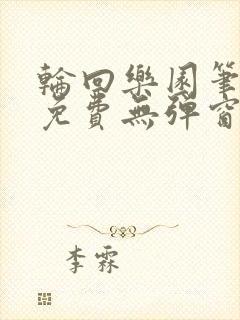 輪回樂園筆
免費無彈窗
李霖